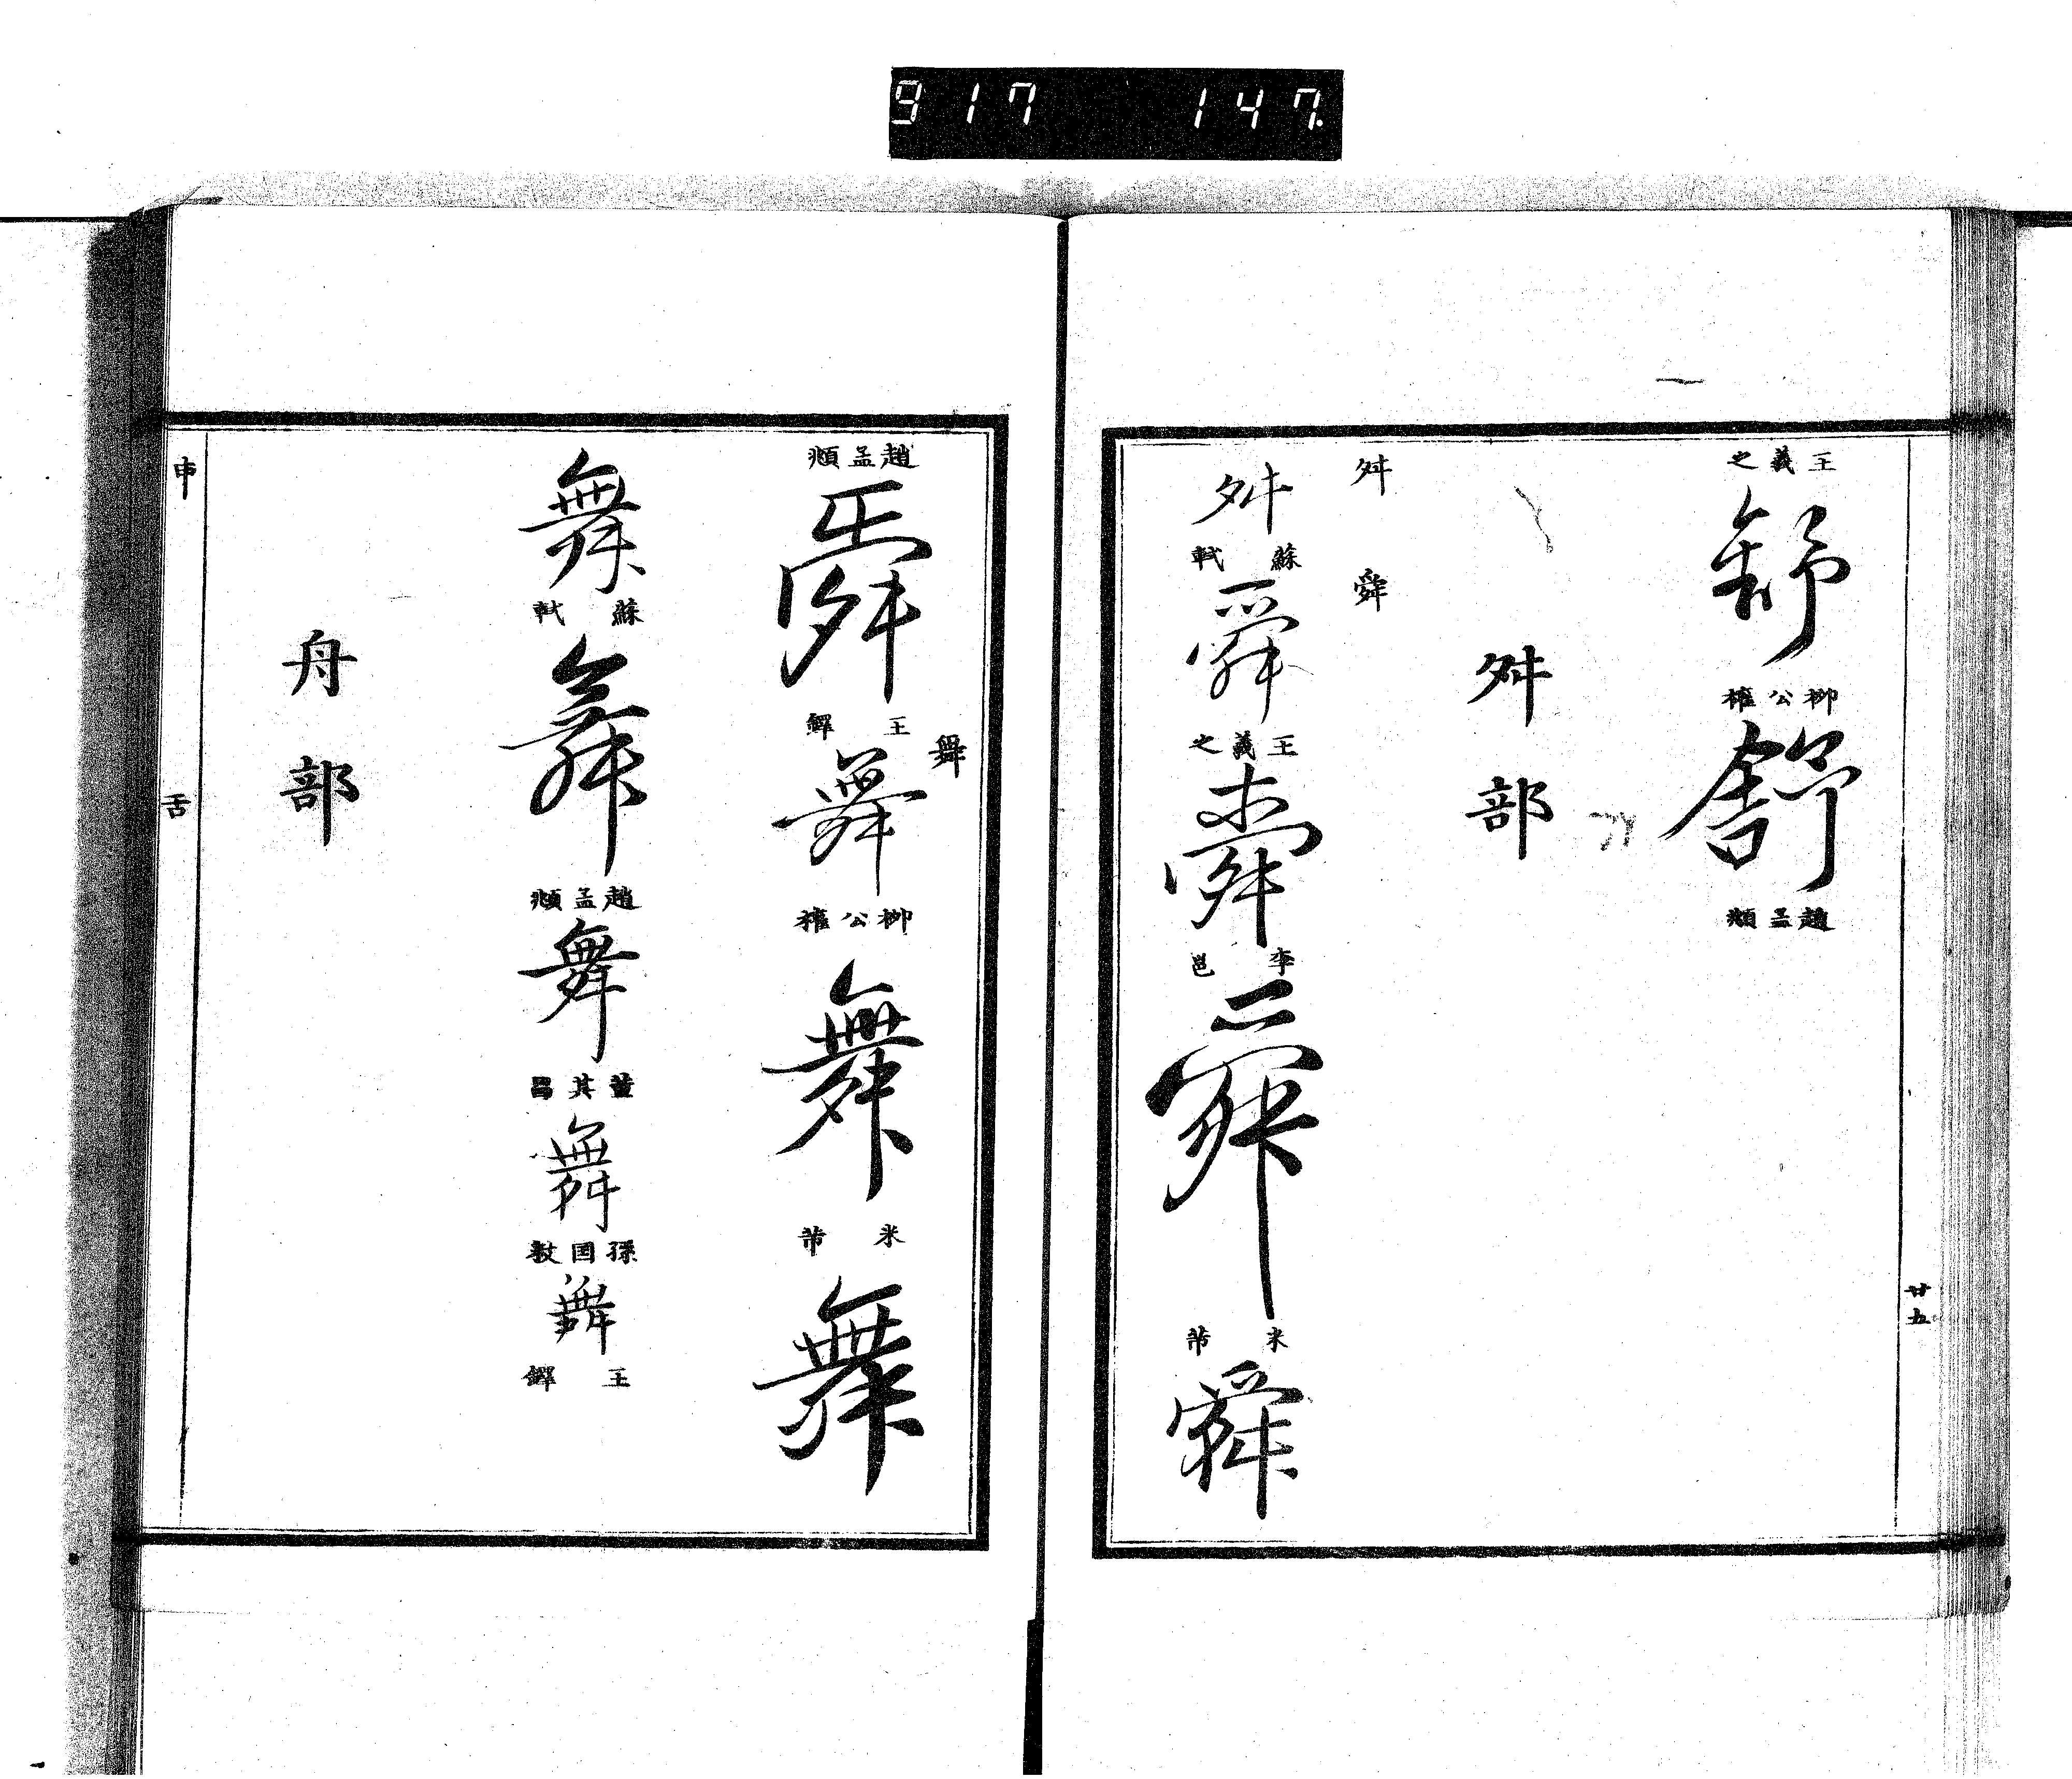 917 147.
廿五
王羲之
舒
柳公權
舒
趙孟頫
舛部
舛 舜
舛
蘇軾
舜
王羲之
舜
李邕
舜
米芾
舜
趙孟頫
舜
王鐸
舞
舞
柳公權
舞
米芾
舞
舞
蘇軾
舞
趙孟頫
舞
董其昌
舞
孫國敉
舞
王鐸
舟部
申 舌